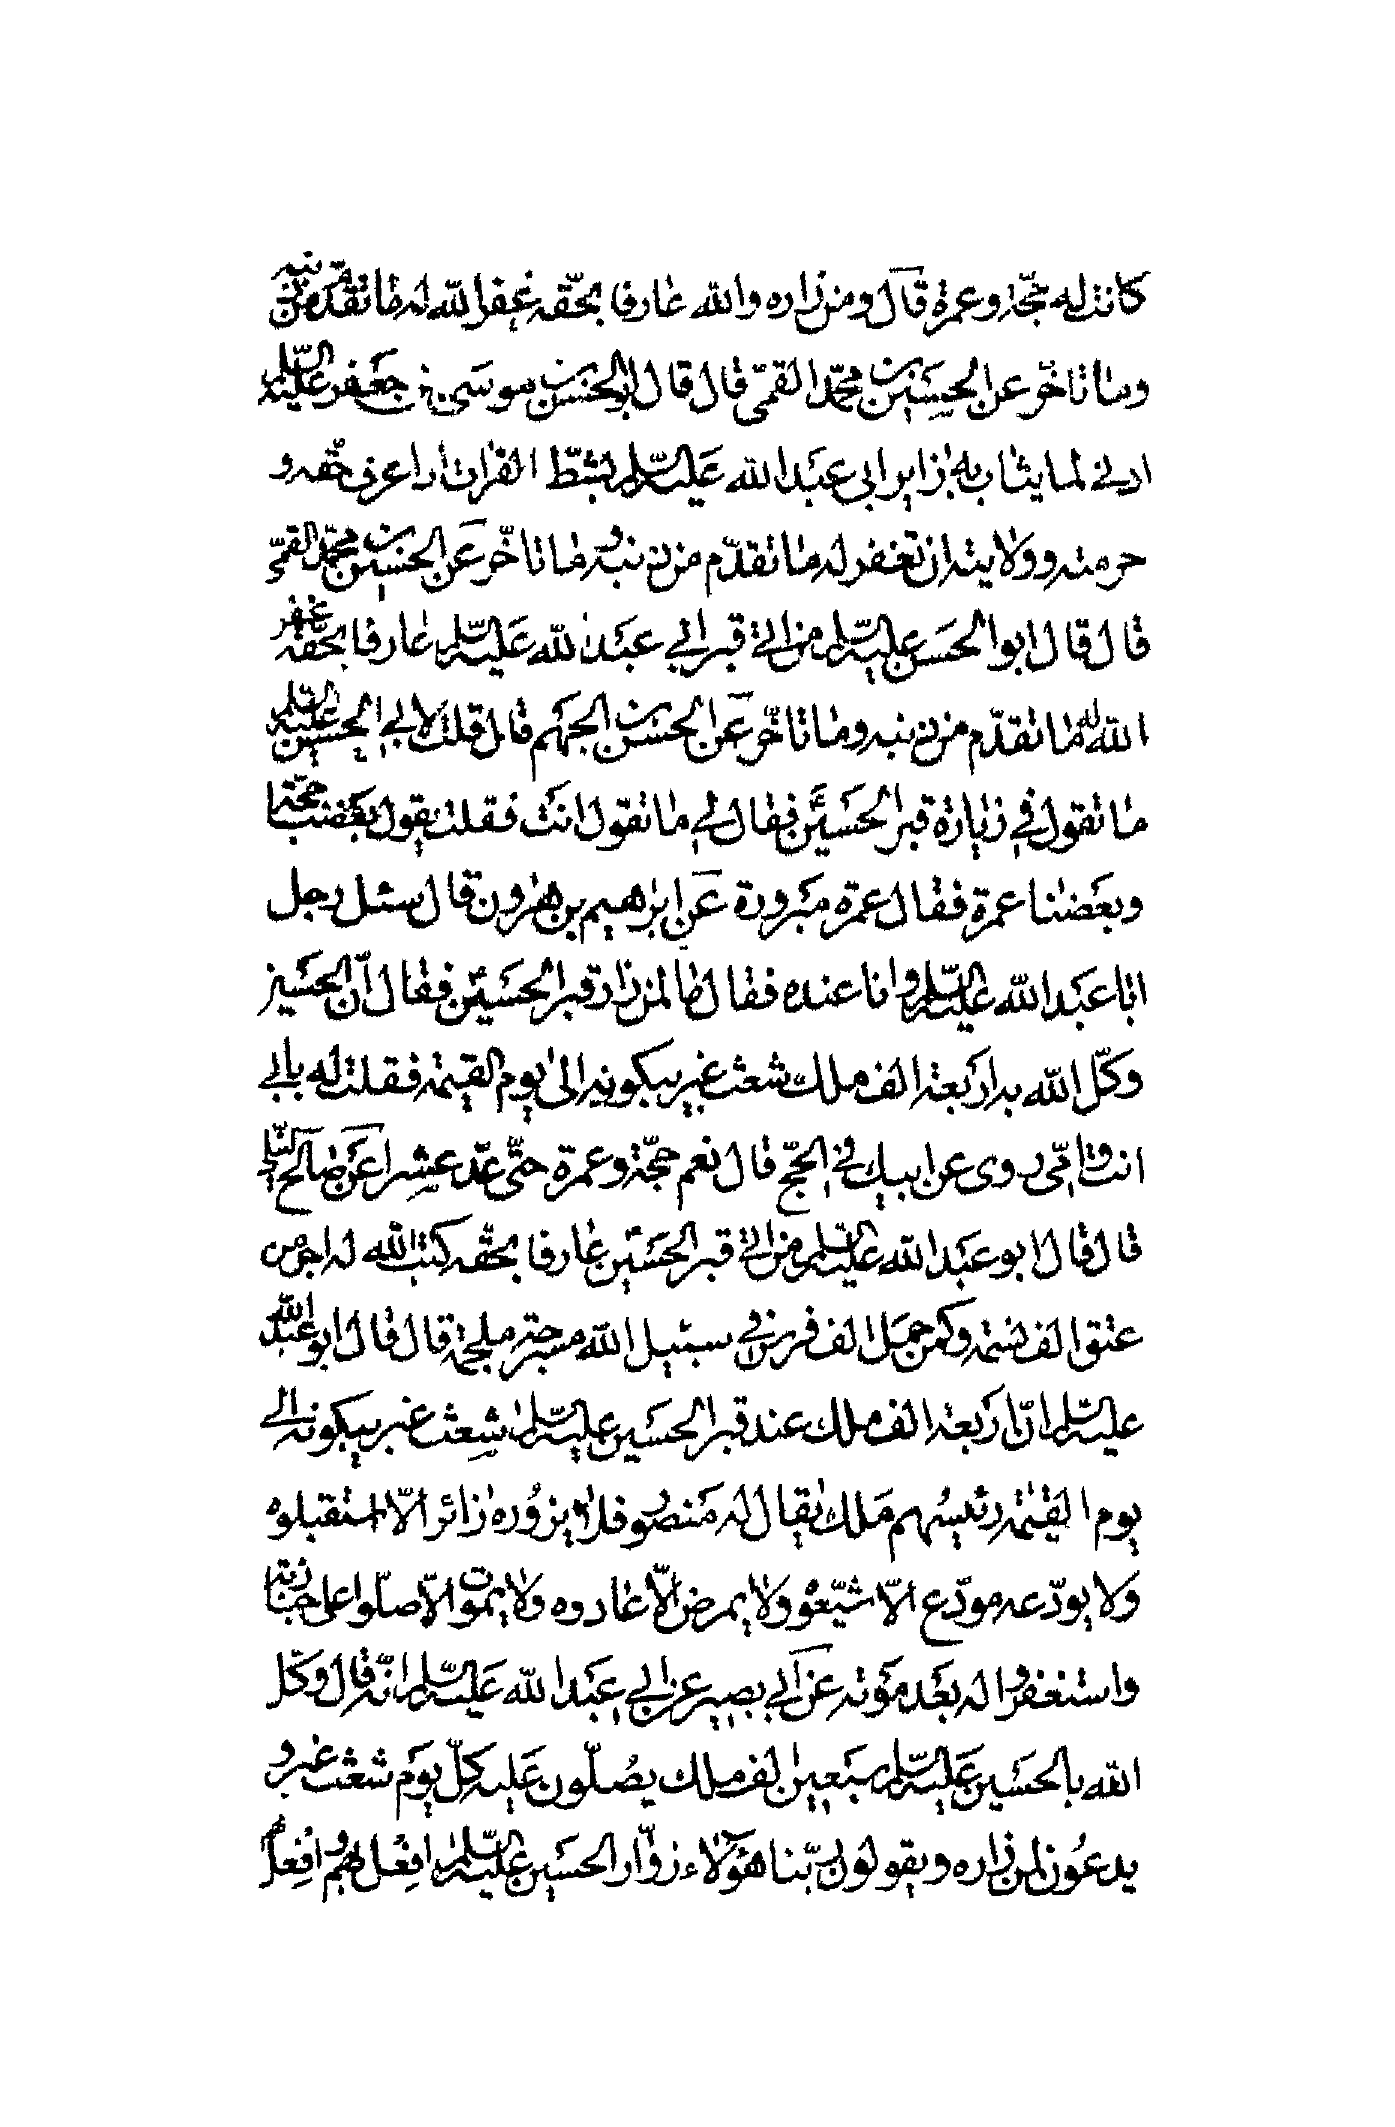 كانت له حجّة وعمرة قال ومن زاره والله عارفا بحقّه غفر الله له ما تقدّم من ذنبه
وما تاخّر عن الحسين بن محمّد القمّى قال قال ابوالحسن موسى بن جعفر عليه السّلم
ادنى لما يثاب به زاير ابي عبدالله عليه السّلم بشطّ الفرات اذا عرف حقّه و
حرمته وولايته ان تغفر له ما تقدّم من ذنبه وما تاخّر عن الحسين بن محمّد القمّى
قال قال ابوالحسن عليه السّلم من اتى قبر ابي عبدالله عليه السّلم عارفا بحقّه غفر
الله له ما تقدّم من ذنبه وما تاخّر عن الحسن بن الجهم قال قلت لابي الحسين عليه السّلم
ما تقول في زيارة قبر الحسينّ فقال لي ما تقول انت فقلت يقول بعضنا حجّة
وبعضنا عمرة فقال عمرة مبرورة عن ابرهيم بن هرون قال سئل رجل
ابا عبدالله عليه السّلم وانا عنده فقال ما لمن زار قبر الحسين فقال انّ الحسين
وكّل الله به اربعة الف ملك شعث غبر يبكونه الى يوم القيمة فقلت له بابي
انت وامّى روى عن ابيك في الحجّ قال نعم حجّة وعمرة حتّى عدّ عشرا عن صالح النيلي
قال قال ابو عبدالله عليه السّلم من اتى قبر الحسين عارفا بحقّه كتب الله له اجر من
عتق الف نسمة وكمن حمل الف فرس في سبيل الله مسرجة ملجمة قال قال ابو عبدالله
عليه السّلم انّ اربعة الف ملك عند قبر الحسين عليه السّلم شعث غبر يبكونه الى
يوم القيمة رئيسهم ملك يقال له منصور فلا يزوره زائر الّا استقبلوه
ولا يودّعه مودّع الّا شيّعوه ولا يمرض الّا عادوه ولا يموت الّا صلّوا على جنازته
واستغفروا له بعد موته عن ابي بصير عن ابي عبدالله عليه السّلم انّه قال وكّل
الله بالحسين عليه السّلم سبعين الف ملك يصلّون عليه كلّ يوم شعث غبر و
يدعون لمن زاره ويقولون ربّنا هؤلاء زوّار الحسين عليه السّلم افعل بهم وافعل